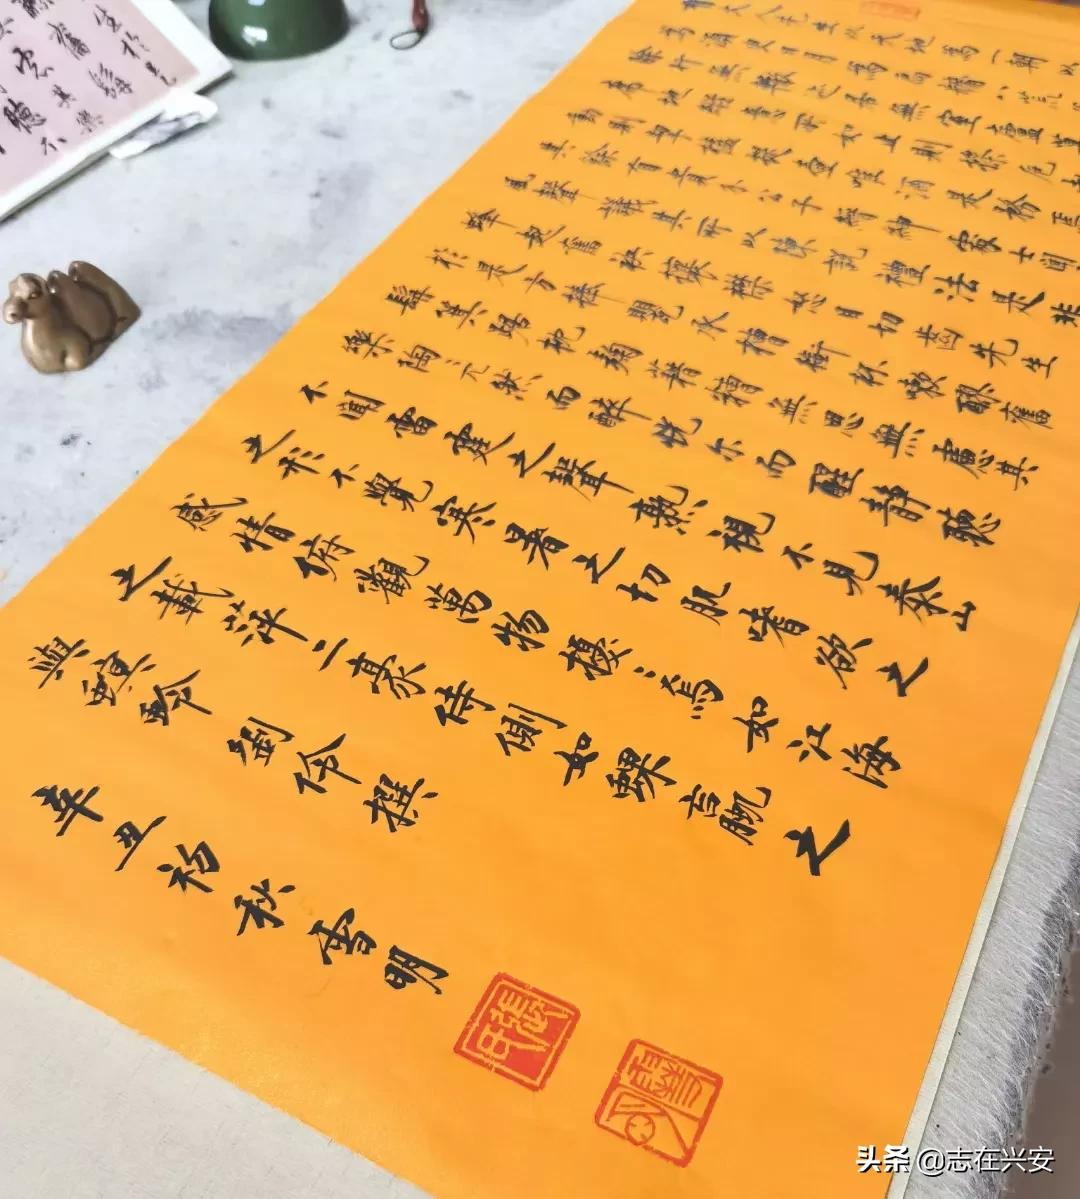 有大人先生以天地爲一朝
爲須臾日月爲扃牖八荒
行無轍 居無室廬
席地縱意所如止則操卮
動則挈榼提壺唯酒是務焉
其餘有貴介公子搢紳處士聞
風聲議其所以陳說禮法是非
鋒起奮袂攘襟怒目切齒先生
於是方捧罌承槽銜杯漱醪奮
髯箕踞枕麴藉糟無思無慮其
樂陶〻兀然而醉恍尔而醒靜聽
不聞雷霆之聲熟視不見泰山
之形不覺寒暑之切肌嗜欲之
感情俯觀萬物擾〻焉如江海
之載萍二豪侍側如蜾蠃之
與螟蛉 劉伶撰
辛丑初秋雪明
头条 @志在兴安